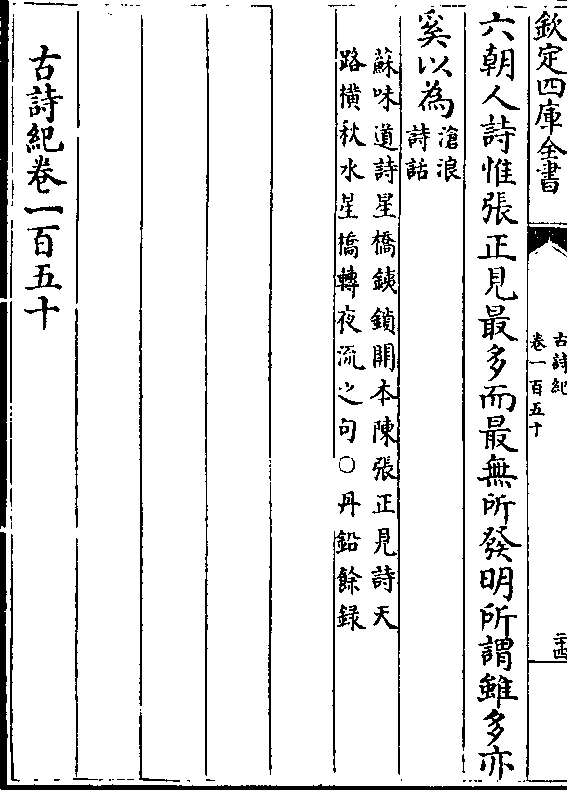 欽定四庫全書
古詩紀
卷一百五十
二十四
六朝人詩惟張正見最多而最無所發明所謂雖多亦
奚以為
滄浪
詩話
蘇味道詩星橋銕鎖開本陳張正見詩天
路橫秋水星橋轉夜流之句○丹鉛餘録
古詩紀卷一百五十